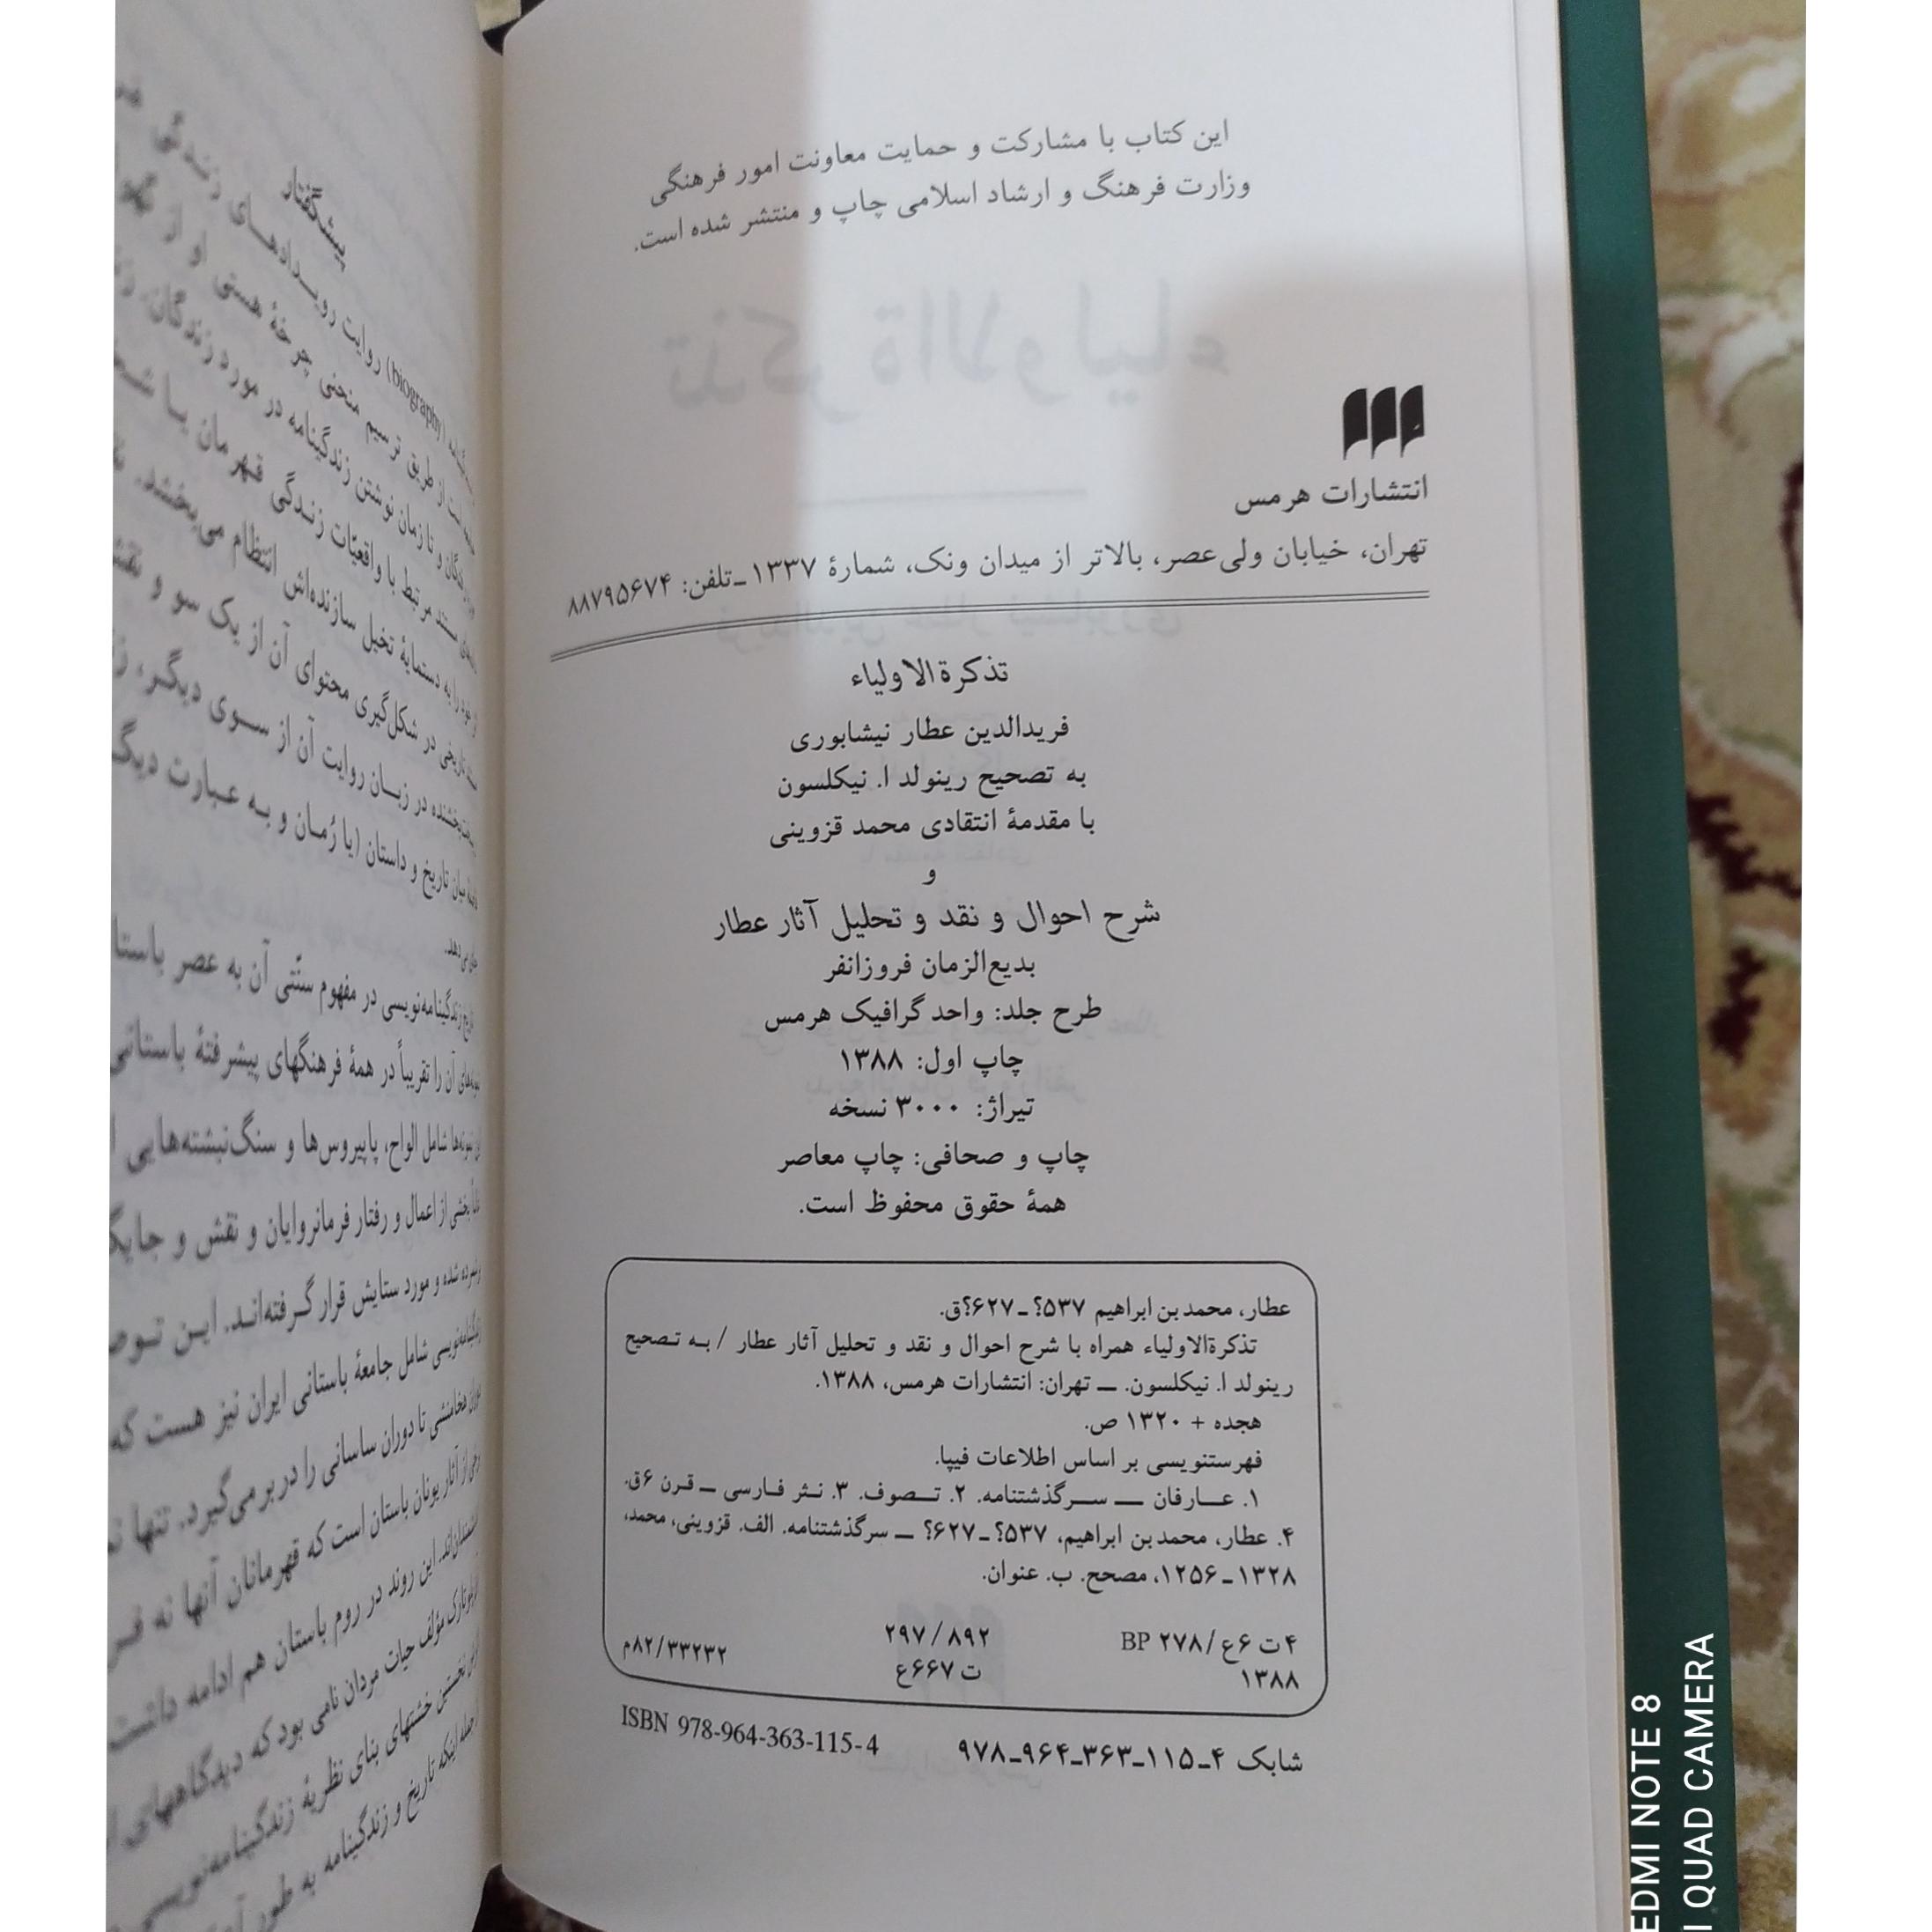 این کتاب با مشارکت و حمایت معاونت امور فرهنگی
وزارت فرهنگ و ارشاد اسلامی چاپ و منتشر شده است.
انتشارات هرمس
تهران، خیابان ولی‌عصر، بالاتر از میدان ونک، شمارهٔ ۱۳۳۷ ـ تلفن: ۸۸۷۹۵۶۷۴
تذکرةالاولیاء
فریدالدین عطار نیشابوری
به تصحیح رینولد ا. نیکلسون
با مقدمهٔ انتقادی محمد قزوینی
و
شرح احوال و نقد و تحلیل آثار عطار
بدیع‌الزمان فروزانفر
طرح جلد: واحد گرافیک هرمس
چاپ اول: ۱۳۸۸
تیراژ: ۳۰۰۰ نسخه
چاپ و صحافی: چاپ معاصر
همهٔ حقوق محفوظ است.
عطار، محمد بن ابراهیم ۵۳۷؟ ـ ۶۲۷؟ق.
تذکرةالاولیاء همراه با شرح احوال و نقد و تحلیل آثار عطار / به تصحیح
رینولد ا. نیکلسون. ــ تهران: انتشارات هرمس، ۱۳۸۸.
هجده + ۱۳۲۰ ص.
فهرستنویسی بر اساس اطلاعات فیپا.
۱. عارفان ــ سرگذشتنامه. ۲. تصوف. ۳. نثر فارسی ــ قرن ۶ق.
۴. عطار، محمد بن ابراهیم، ۵۳۷؟ ـ ۶۲۷؟ ــ سرگذشتنامه. الف. قزوینی، محمد،
۱۲۵۶ـ۱۳۲۸، مصحح. ب. عنوان.
۴ت ۶ع/ BP ۲۷۸
۲۹۷/۸۹۲
۸۲/۳۳۲۳۲م
۱۳۸۸
ت ۶۶۷ع
شابک ۴ـ۱۱۵ـ۳۶۳ـ۹۶۴ـ۹۷۸
ISBN 978-964-363-115-4
پیشگفتار
(biography) روایت رویدادهای زندگی
از طریق ترسیم منحنی چرخهٔ هستی او از
و تا زمان نوشتن زندگینامه در مورد زندگان.
مستند مرتبط با واقعیّات زندگی قهرمان یا
را به دستمایهٔ تخیل سازنده‌اش انتظام می‌بخشد.
تاریخی در شکل‌گیری محتوای آن از یک سو و
در زبان روایت آن از سوی دیگر،
میان تاریخ و داستان (یا رُمان و به عبارت
می‌دهد.
زندگینامه‌نویسی در مفهوم سنّتی آن به عصر
آن را تقریباً در همهٔ فرهنگهای پیشرفتهٔ باستانی
نمونه‌ها شامل الواح، پاپیروس‌ها و سنگ‌نبشته‌هایی
بخشی از اعمال و رفتار فرمانروایان و نقش و
شده و مورد ستایش قرار گرفته‌اند. این
شامل جامعهٔ باستانی ایران نیز هست که
هخامنشی تا دوران ساسانی را دربر می‌گیرد. تنها
از آثار یونان باستان است که قهرمانان آنها نه
این روند در روم باستان هم ادامه داشت
مؤلف حیات مردان نامی بود که دیدگاههای
نخستین خشتهای بنای نظریهٔ زندگینامه‌نویسی
اینکه تاریخ و زندگینامه به طور
EDMI NOTE 8
I QUAD CAMERA